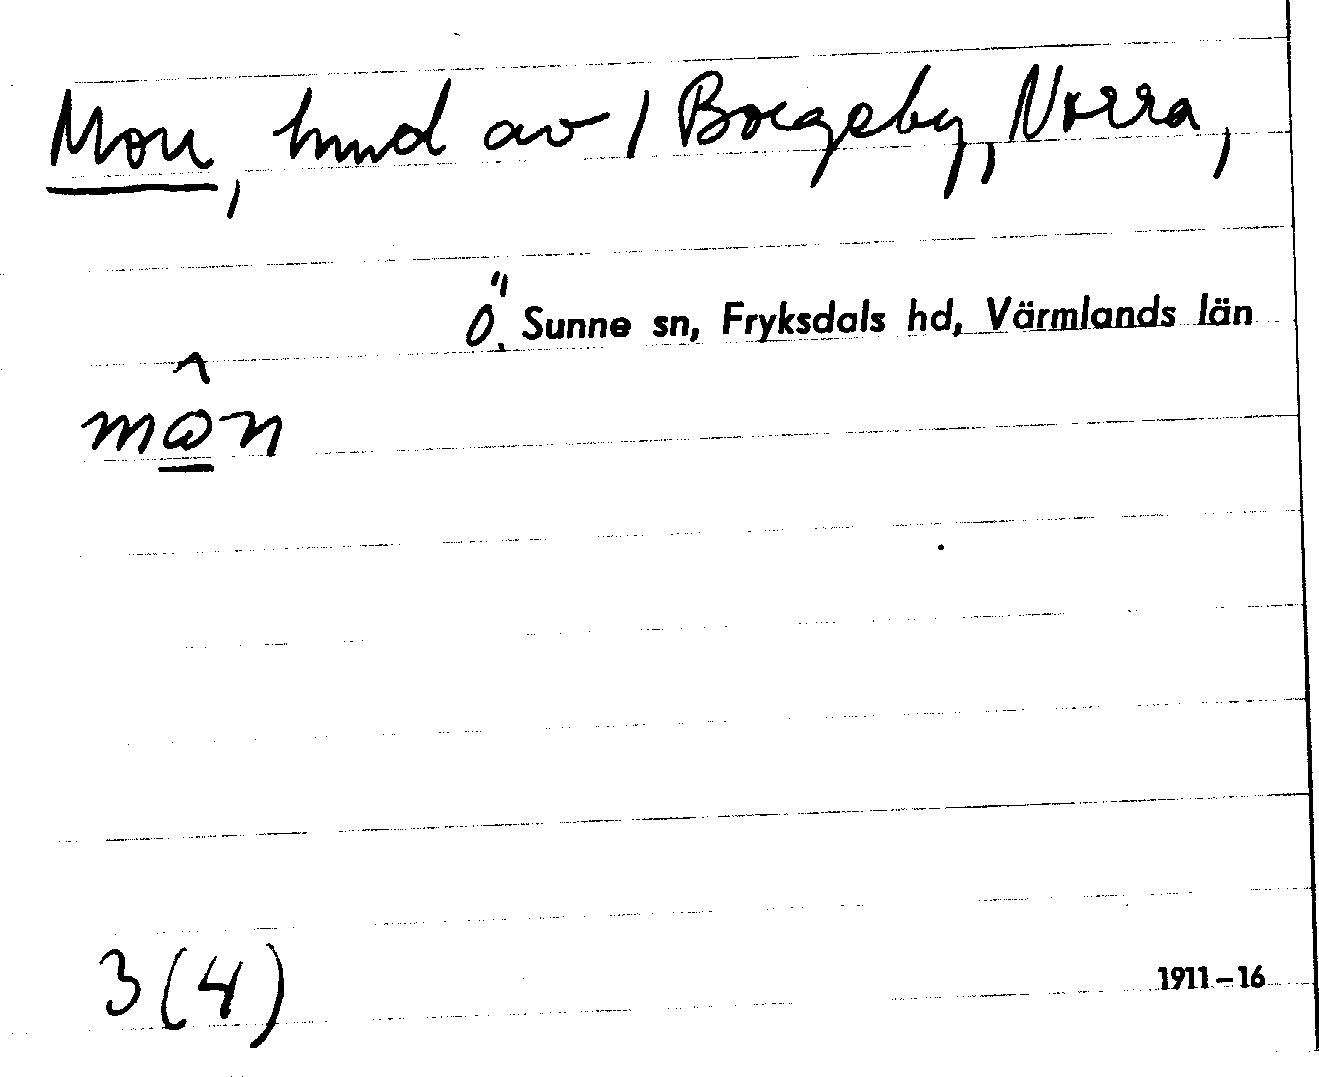 Mon, hmd av 1 Borgeby, Norra,
Ö. Sunne sn, Fryksdals hd, Värmlands län
mⱺ̂n
3 (4)
1911–16